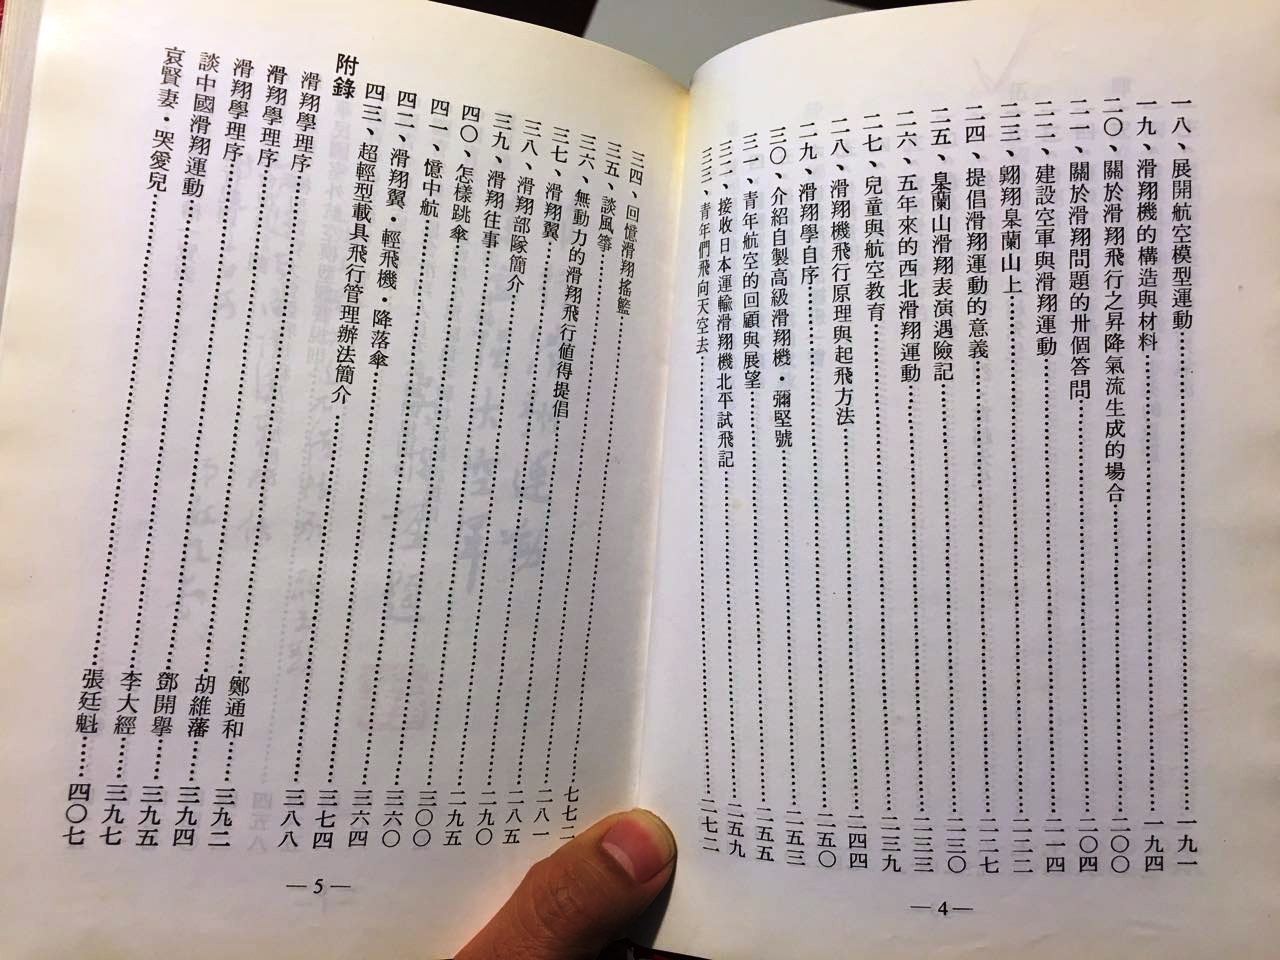 一八、展開航空模型運動……一九一
一九、滑翔機的構造與材料……一九四
二〇、關於滑翔飛行之昇降氣流生成的場合……二〇〇
二一、關於滑翔問題的卅個答問……二〇四
二二、建設空軍與滑翔運動……二一四
二三、翱翔臯蘭山上……二二二
二四、提倡滑翔運動的意義……二二七
二五、臯蘭山滑翔表演遇險記……二三〇
二六、五年來的西北滑翔運動……二三三
二七、兒童與航空教育……二三九
二八、滑翔機飛行原理與起飛方法……二四四
二九、滑翔學自序……二五〇
三〇、介紹自製高級滑翔機・彌堅號……二五三
三一、青年航空的回顧與展望……二五五
三二、接收日本運輸滑翔機北平試飛記……二五九
三三、青年們飛向天空去……二七二
— 4 —
三四、回憶滑翔搖籃……七七二
三五、談風箏……二八一
三六、無動力的滑翔飛行值得提倡……二八五
三七、滑翔翼……二九〇
三八、滑翔部隊簡介……二九五
三九、滑翔往事……三〇〇
四〇、怎樣跳傘……三六〇
四一、憶中航……三六四
四二、滑翔翼・輕飛機・降落傘……三七四
四三、超輕型載具飛行管理辦法簡介……三八八
附錄
滑翔學理序……鄭通和……三九二
滑翔學理序……胡維藩……三九四
滑翔學理序……鄧開舉……三九五
談中國滑翔運動……李大經……三九七
哀賢妻・哭愛兒……張廷魁……四〇七
— 5 —